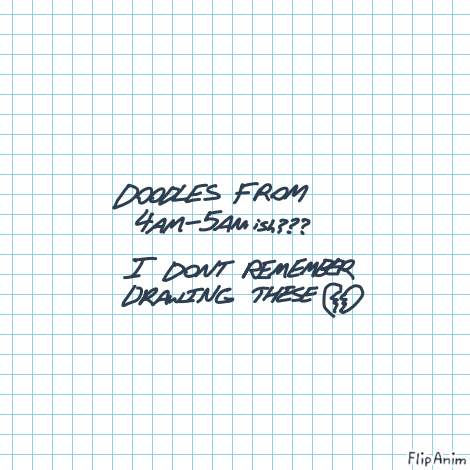 DOODLES FROM
4AM-5AM ish???
I DONT REMEMBER
DRAWING THESE 💔
FlipAnim